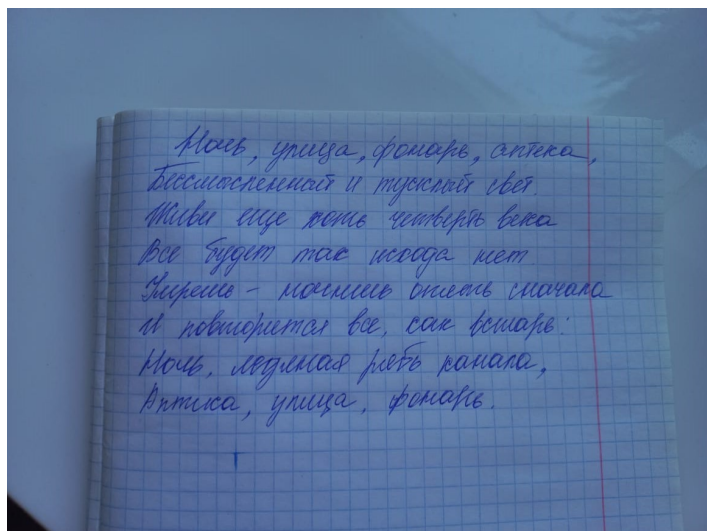 Ночь, улица, фонарь, аптека,
Бессмысленный и тусклый свет.
Живи еще хоть четверть века
Все будет так исхода нет.
Умрешь - начнешь опять сначала
И повторится все, как встарь:
Ночь, ледяная рябь канала,
Аптека, улица, фонарь.